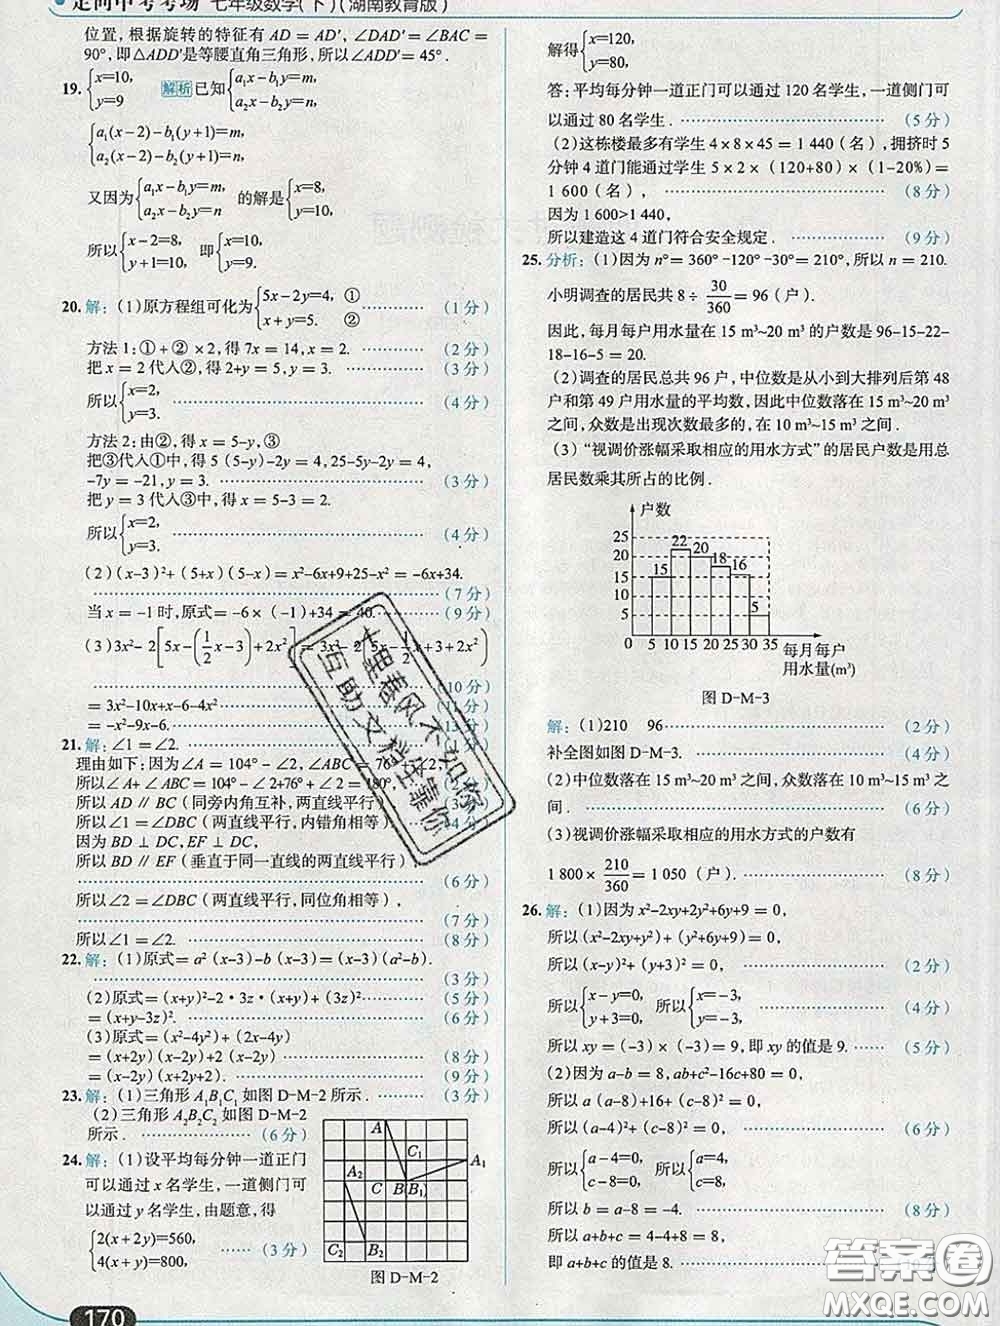 走向中考考场 七年级数学(下)(湖南教育版)
位置,根据旋转的特征有 AD = AD′, ∠DAD′ = ∠BAC =
90°,即△ADD′是等腰直角三角形,所以∠ADD′ = 45°.
19. {x=10, y=9 解析 已知 {a₁x-b₁y=m, a₂x-b₂y=n,
{a₁(x-2)-b₁(y+1)=m, a₂(x-2)-b₂(y+1)=n,
又因为 {a₁x-b₁y=m, a₂x-b₂y=n 的解是 {x=8, y=10,
所以 {x-2=8, y+1=10, 即 {x=10, y=9.
20. 解:(1)原方程组可化为 {5x-2y=4, ① x+y=5. ② ………… (1分)
方法1:①+②×2,得 7x=14,x=2. ………… (2分)
把 x=2 代入②,得 2+y=5,y=3. ………… (3分)
所以 {x=2, y=3. ………… (4分)
方法2:由②,得 x=5-y,③
把③代入①中,得 5(5-y)-2y=4,25-5y-2y=4,
-7y=-21,y=3. ………… (3分)
把 y=3 代入③中,得 x=5-3=2.
所以 {x=2, y=3. ………… (4分)
(2)(x-3)²+(5+x)(5-x)=x²-6x+9+25-x²=-6x+34.
………… (7分)
当 x=-1时,原式=-6×(-1)+34=40. ………… (9分)
(3)3x²-2[5x-(½x-3)+2x²]=3x²-2[5x-½x+3+2x²]
………… (10分)
=3x²-10x+x-6-4x² ………… (11分)
=-x²-9x-6. ………… 分)
21. 解:∠1=∠2. …………
理由如下:因为∠A=104°-∠2,∠ABC=76°+∠2,
所以∠A+∠ABC=104°-∠2+76°+∠2=180°,
所以 AD∥BC(同旁内角互补,两直线平行).
所以∠1=∠DBC(两直线平行,内错角相等). 4分)
因为 BD⊥DC,EF⊥DC,
所以 BD∥EF(垂直于同一直线的两直线平行),
………… (6分)
所以∠2=∠DBC(两直线平行,同位角相等),
………… (7分)
所以∠1=∠2. ………… (8分)
22. 解:(1)原式=a²(x-3)-b(x-3)=(x-3)(a²-b).
………… (3分)
(2)原式=(x+y)²-2·3z·(x+y)+(3z)² ………… (5分)
=(x+y-3z)². ………… (6分)
(3)原式=(x²-4y²)+(2x-4y)
=(x+2y)(x-2y)+2(x-2y) ………… (8分)
=(x-2y)(x+2y+2). ………… (9分)
23. 解:(1)三角形 A₁B₁C₁ 如图 D-M-2 所示. ………… (3分)
(2)三角形 A₂B₂C₂ 如图 D-M-2
所示. ………… (6分)
24. 解:(1)设平均每分钟一道正门
可以通过 x 名学生,一道侧门可
以通过 y 名学生,由题意,得
{2(x+2y)=560, 4(x+y)=800, …… (3分)
A C₁ A₁ A₂ C B B₁ C₂ B₂
图 D-M-2
170
解得 {x=120, y=80,
答:平均每分钟一道正门可以通过 120 名学生,一道侧门可
以通过 80 名学生. ………… (5分)
(2)这栋楼最多有学生 4×8×45=1 440(名),拥挤时 5
分钟 4 道门能通过学生 5×2×(120+80)×(1-20%)=
1 600(名), ………… (8分)
因为 1 600>1 440,
所以建造这 4 道门符合安全规定. ………… (9分)
25. 分析:(1)因为 n°=360°-120°-30°=210°,所以 n=210.
小明调查的居民共 8÷30/360=96(户).
因此,每月每户用水量在 15 m³~20 m³ 的户数是 96-15-22-
18-16-5=20.
(2)调查的居民总共 96 户,中位数是从小到大排列后第 48
户和第 49 户用水量的平均数,因此中位数落在 15 m³~20 m³
之间,众数是出现次数最多的,在 10 m³~15 m³ 之间.
(3)“视调价涨幅采取相应的用水方式”的居民户数是用总
居民数乘其所占的比例.
户数
25 20 15 10 5 0
15 22 20 18 16 5
5 10 15 20 25 30 35 每月每户
用水量(m³)
图 D-M-3
解:(1)210 96 ………… (2分)
补全图如图 D-M-3. ………… (4分)
(2)中位数落在 15 m³~20 m³ 之间,众数落在 10 m³~15 m³ 之
间. ………… (6分)
(3)视调价涨幅采取相应的用水方式的户数有
1 800×210/360=1 050(户). ………… (8分)
26. 解:(1)因为 x²-2xy+2y²+6y+9=0,
所以(x²-2xy+y²)+(y²+6y+9)=0,
所以(x-y)²+(y+3)²=0, ………… (2分)
所以 {x-y=0, y+3=0, 所以 {x=-3, y=-3, ………… (4分)
所以 xy=(-3)×(-3)=9,即 xy 的值是 9. ………… (5分)
(2)因为 a-b=8,ab+c²-16c+80=0,
所以 a(a-8)+16+(c-8)²=0,
所以(a-4)²+(c-8)²=0, ………… (6分)
所以 {a-4=0, c-8=0, 所以 {a=4, c=8,
所以 b=a-8=-4. ………… (8分)
所以 a+b+c=4-4+8=8,
即 a+b+c 的值是 8.
十里春风不如你
互助文档生靠你
答案圈
MXQE.COM